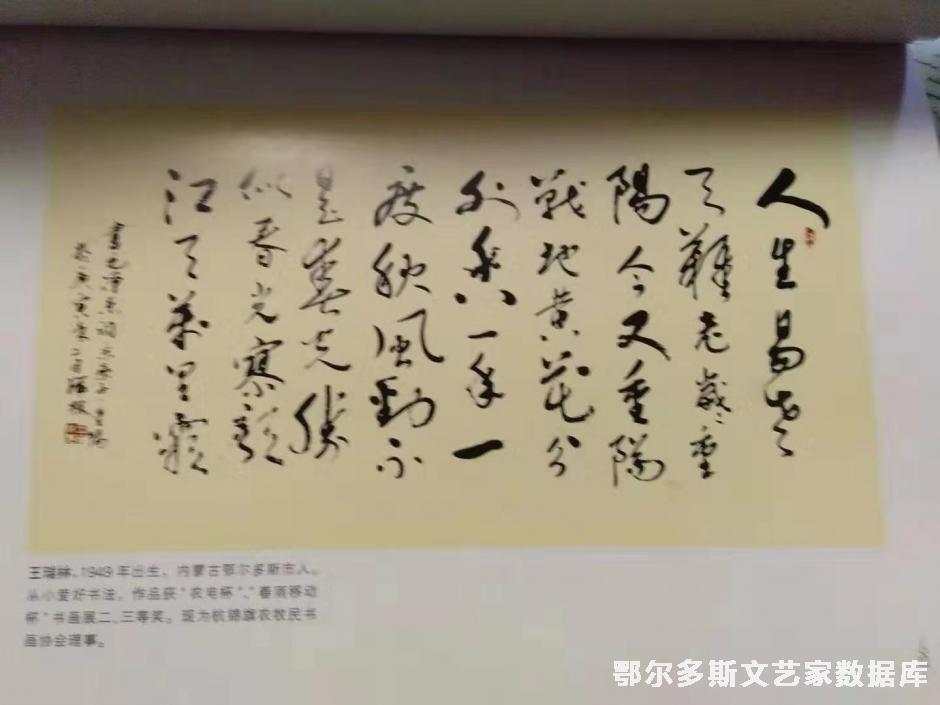 人生易老
天難老歲々重
陽今又重陽
戰地黄花分
外香一年一
度秋風勁不
是春光勝
似春光寥廓
江天萬里霜
書毛澤東詞采桑子重陽
庚寅年二月瑞
王瑞林，1949年出生，内蒙古鄂尔多斯市人。
从小爱好书法，作品获“农电杯”、“春雨移动
杯”书画展二、三等奖。现为杭锦旗农牧民书
画协会理事。
鄂尔多斯文艺家数据库